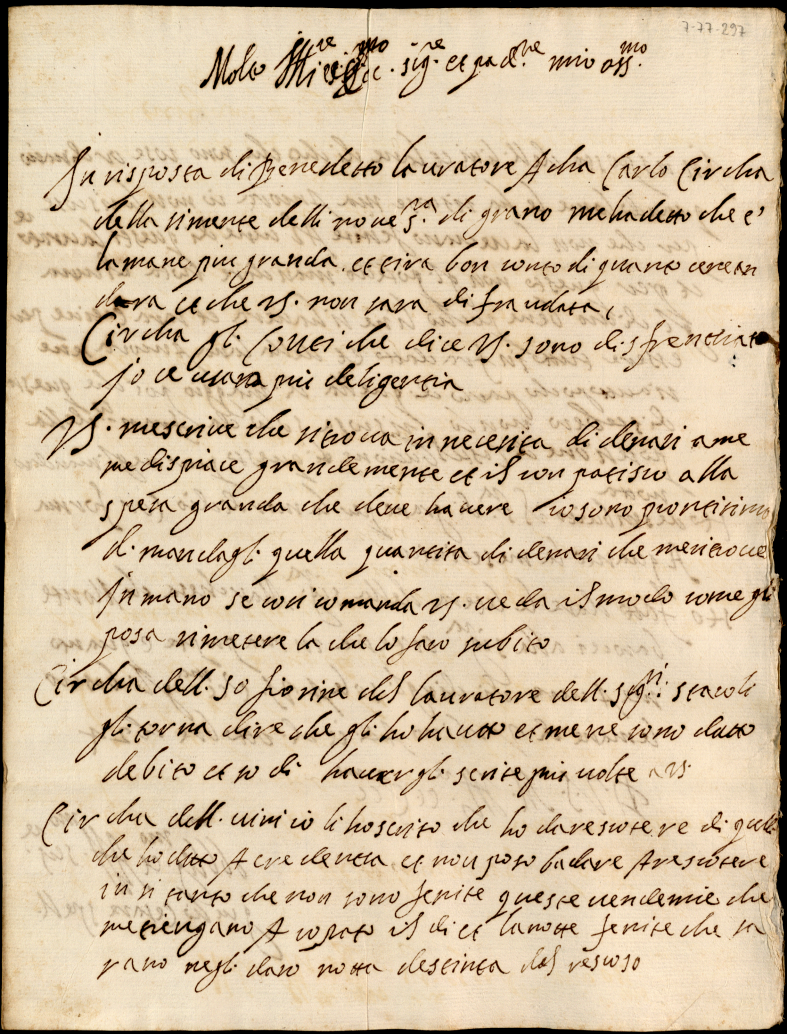 7-77-297
Molto Ill.re et Ecc.mo sig.re et pad.ne mio oss.mo
In risposta di Benedetto lauratore A cha Carlo Circha
della simente delli noue s.ra di grano me ha detto che e'
la mane piu granda et tira bon conto di quanto
dara et che VS. non sara di fraudata,
Circha gl. Conti che dice VS. sono di
Jo ce usara piu deligentia
VS. me scriue che ritroua in necesita di denari a me
me dispiace grandemente et il con patisco alla
spesa granda che deue hauere io sono prontisimo
di mandagl. quella quantita di denari che me ritroue
In mano se cosi comanda VS. ueda il modo come gli
posa rimetere la che lo faro subito
Circha dell. 50 fiorine del lauratore dell. sig.ri stacoli
gli torna dire che gli ho hauto et me ne sono dato
debito et so di hauergli scrite piu uolte a VS
Circha dell. uini io li ho scrito che ho da rescotere di quel
che ho dato A credenza et non poso badare A rescotere
in si tanto che non sono fenite queste uendemie che
me tengano A copato il di et la notte fenite che sa
rano negli daro notta destinta del rescoso